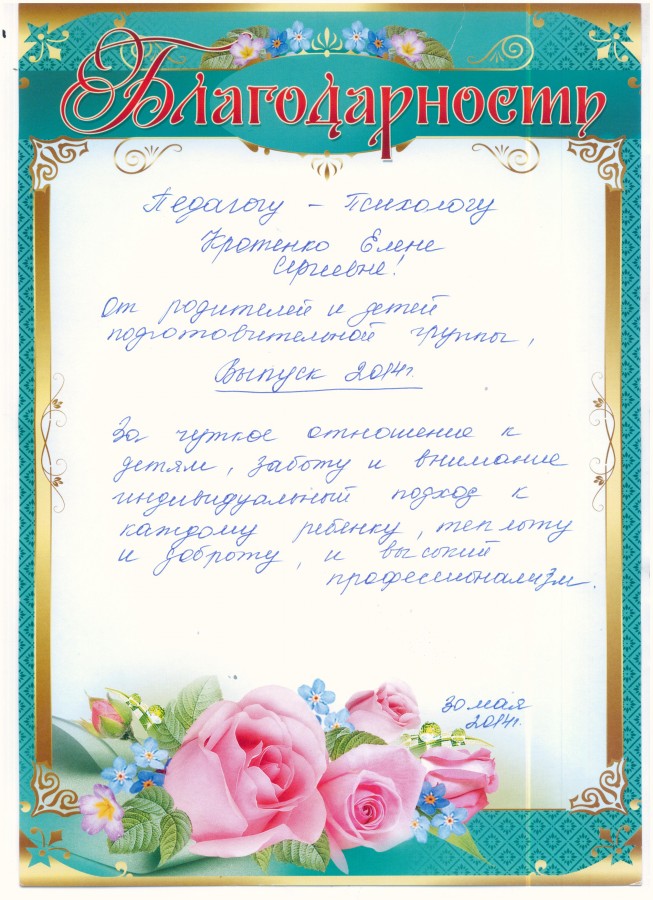 Благодарность
Педагогу - Психологу
Кротенко Елене
Сергеевне!
От родителей и детей
подготовительной группы,
Выпуск 2014г.
За чуткое отношение к
детям, заботу и внимание
индивидуальный подход к
каждому ребёнку, теплоту
и доброту, и высокий
профессионализм.
30 мая
2014г.